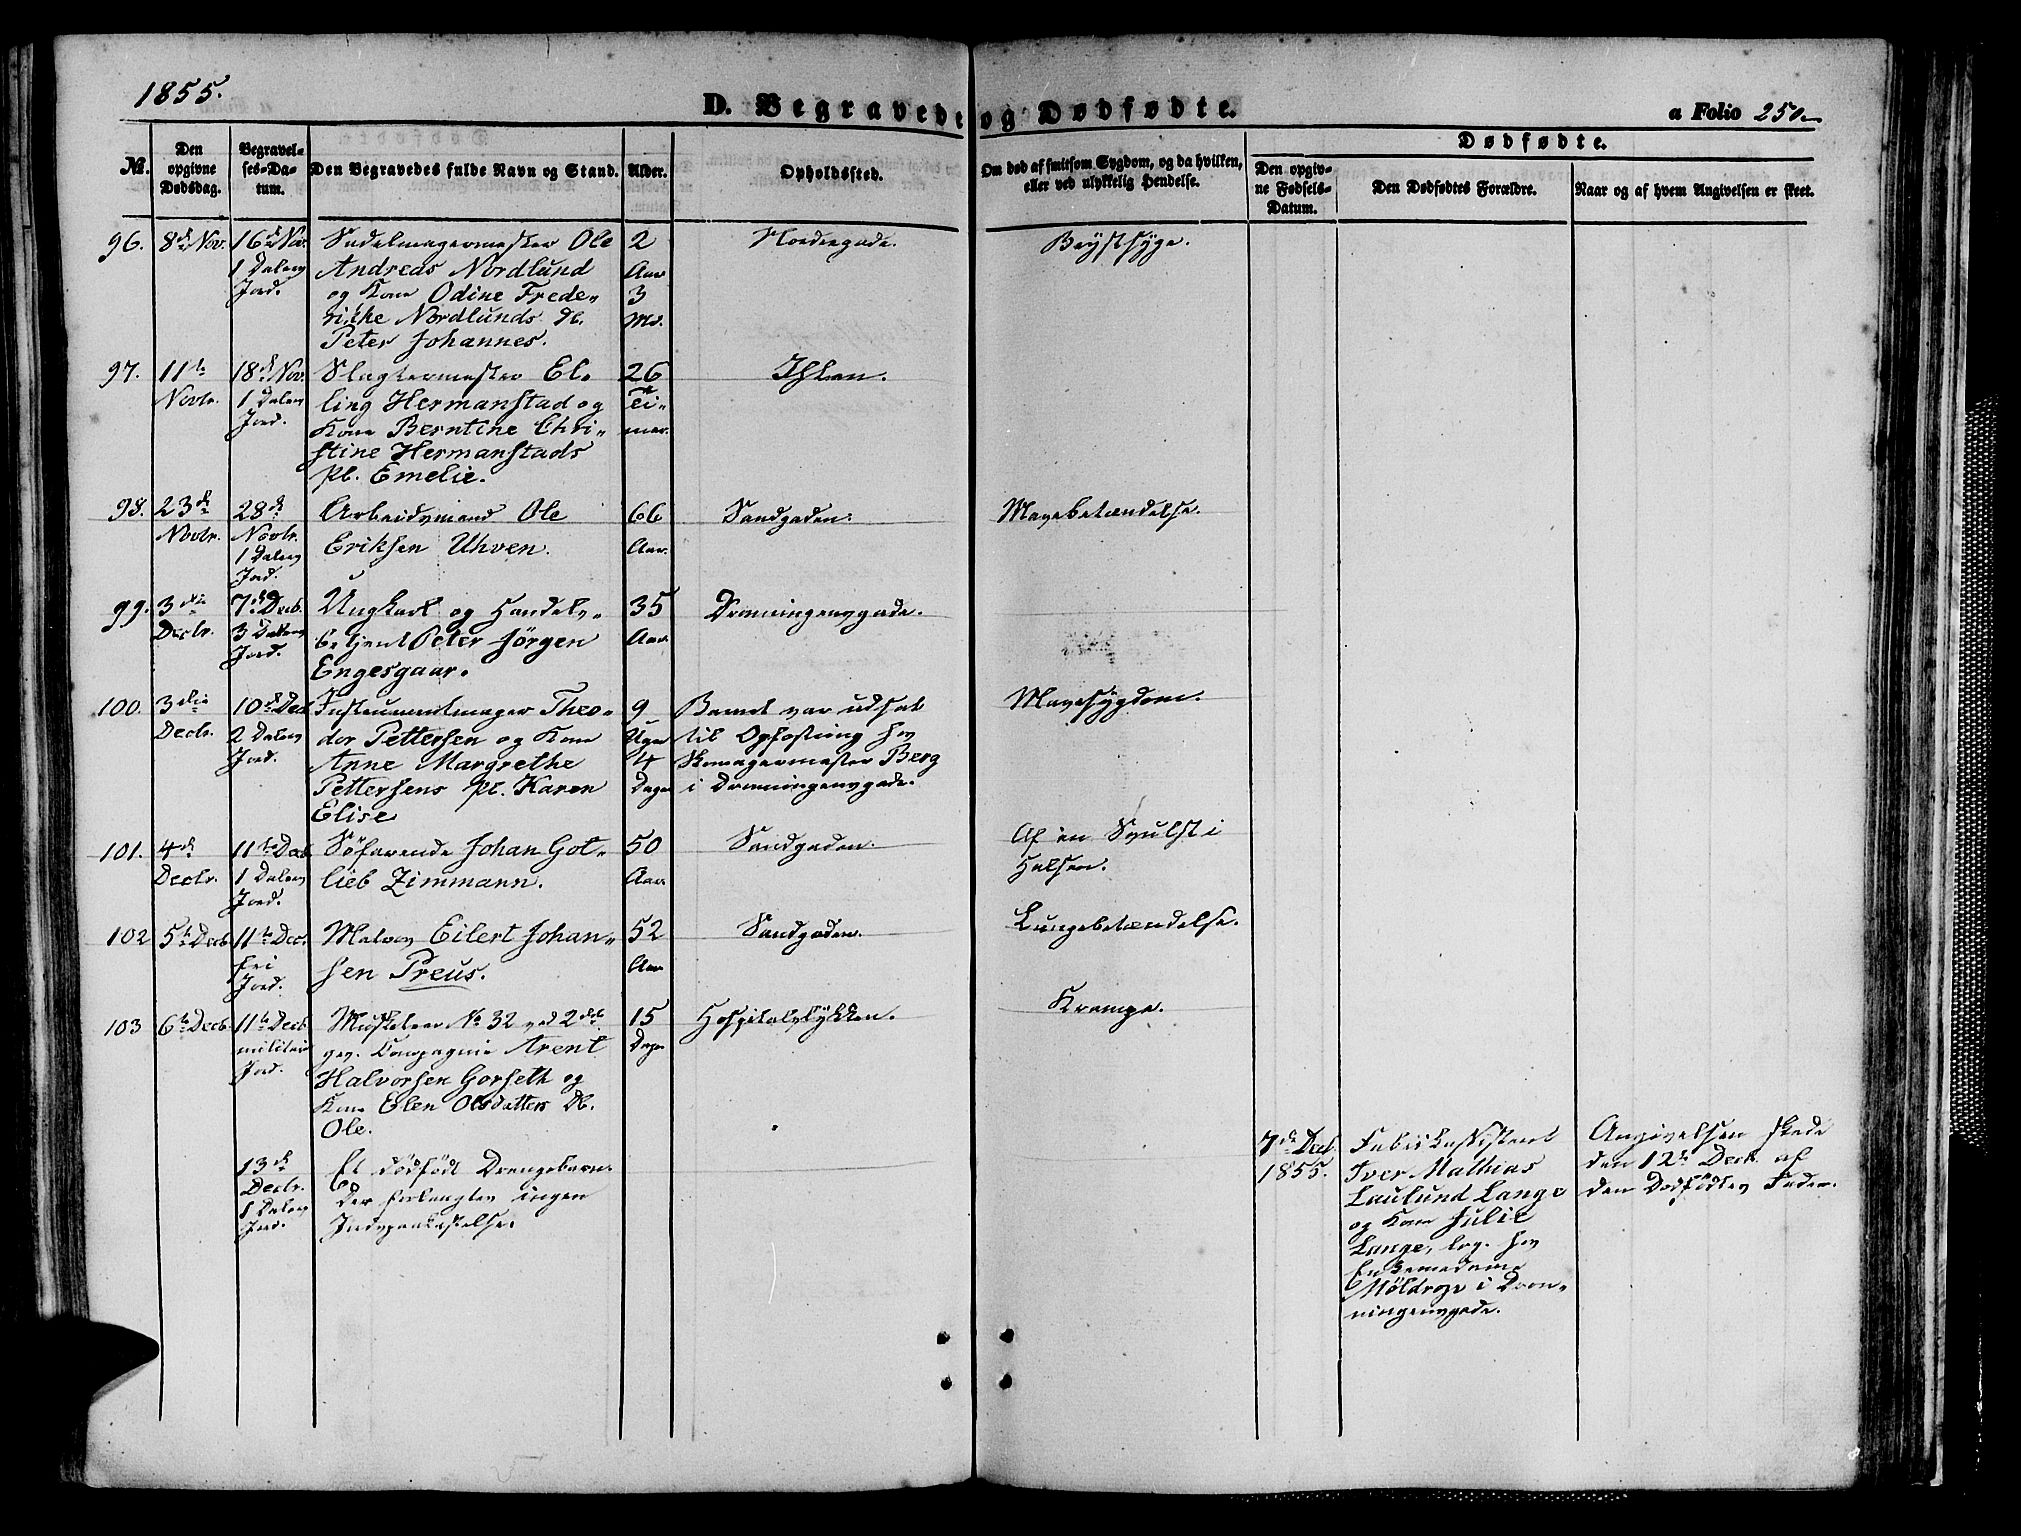 1855.
D. Begravede og Dødfødte.
a Folio 250
№.
Den opgivne Dødsdag.
Begravelses-Datum.
Den Begravedes fulde Navn og Stand.
Alder.
Opholdssted.
Om død af smitsom Sygdom, og da hvilken,
eller ved ulykkelig Hendelse.
Dødfødte.
Den opgivne Fødsels-Datum.
Den Dødfødtes Forældre.
Naar og af hvem Angivelsen er skeet.
96. 8de Nov. 16de Nov. Sadelmagermester Ole 2 Nordregade. Brystsyge.
1 Dalers Andreas Nordlund Aar
Jord. og Kone Odine Frede- 3
rikke Nordlunds Db. Md.
Peter Johannes.
97. 11te 18de Nov. Slagtermester El- 26 Ihlen.
Novbr. 1 Dalers ling Hermanstad og Ti-
Jord. Kone Berntine Chri- mer.
stine Hermanstads
Pb. Emelie.
98. 23de 28de Arbeidsmand Ole 66 Sandgaden. Mavebetændelse.
Novbr. Novbr. Eriksen Uhven. Aar.
1 Dalers
Jord.
99. 3die 7de Decb. Ungkarl og Handels- 35 Dronningensgade.
Decbr. 3 Dalers betjent Peter Jörgen Aar.
Jord. Engesgaar.
100. 3die 10de Dec. Instrumentmager Theo- 9 Barnet var udsat Mavesygdom.
Decbr. 2 Dalers dor Pettersen og Kone Uger til Opfostring hos
Jord. Anne Margrethe 4 Skomagermester Berg
Pettersens Pb. Karen Dage i Dronningensgade.
Elise
101. 4de 11te Decb. Söfarende Johan Got- 50 Sandgaden. Af en Svulst i
Decbr. 1 Dalers lieb Zimmann. Aar. Halsen.
Jord.
102 5te Decb. 11te Dec. Matros Eilert Johan- 52 Sandgaden. Lungebetændelse.
fri sen Preus. Aar
Jord.
103 6te Decb. 11te Decb. Musketeer No 32 ved 2det 15 Hospitalsløkken. Krampe.
militair gev. Compagnie Arent Dage
Jord. Halvorsen Gorseth og
Kone Elen Olsdatters Db.
Ole.
13de Et dødfødt Drengebarn.
Decbr. Der forlangtes ingen
1 Dalers Jordpaakastelse.
Jord.
7de Decb. Fabrikassistent Angivelsen skede
1855. Iver Mathias den 12te Decb. af
Laulund Lange den Dødfødtes Fader.
og Kone Julie
Lange, log. hos
Enkemadame
Möldrop i Dron-
ningensgade.